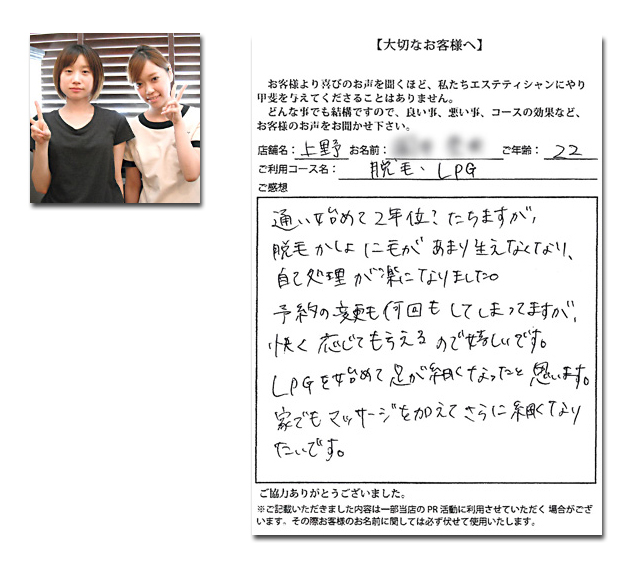 【大切なお客様へ】
お客様より喜びのお声を聞くほど、私たちエステティシャンにやり
甲斐を与えてくださることはありません。
どんな事でも結構ですので、良い事、悪い事、コースの効果など、
お客様のお声をお聞かせ下さい。
店舗名： 上野 お名前： ご年齢： 22
ご利用コース名： 脱毛、LPG
ご感想
通い始めて2年位?たちますが、
脱毛かしょに毛があまり生えなくなり、
自己処理が楽になりました。
予約の変更も何回もしてしまってますが、
快く応じてもらえるので嬉しいです。
LPGを始めて足が細くなったと思います。
家でもマッサージを加えてさらに細くなり
たいです。
ご協力ありがとうございました。
※ご記載いただきました内容は一部当店の PR 活動に利用させていただく 場合がござ
います。その際お客様のお名前に関しては必ず伏せて使用いたします。